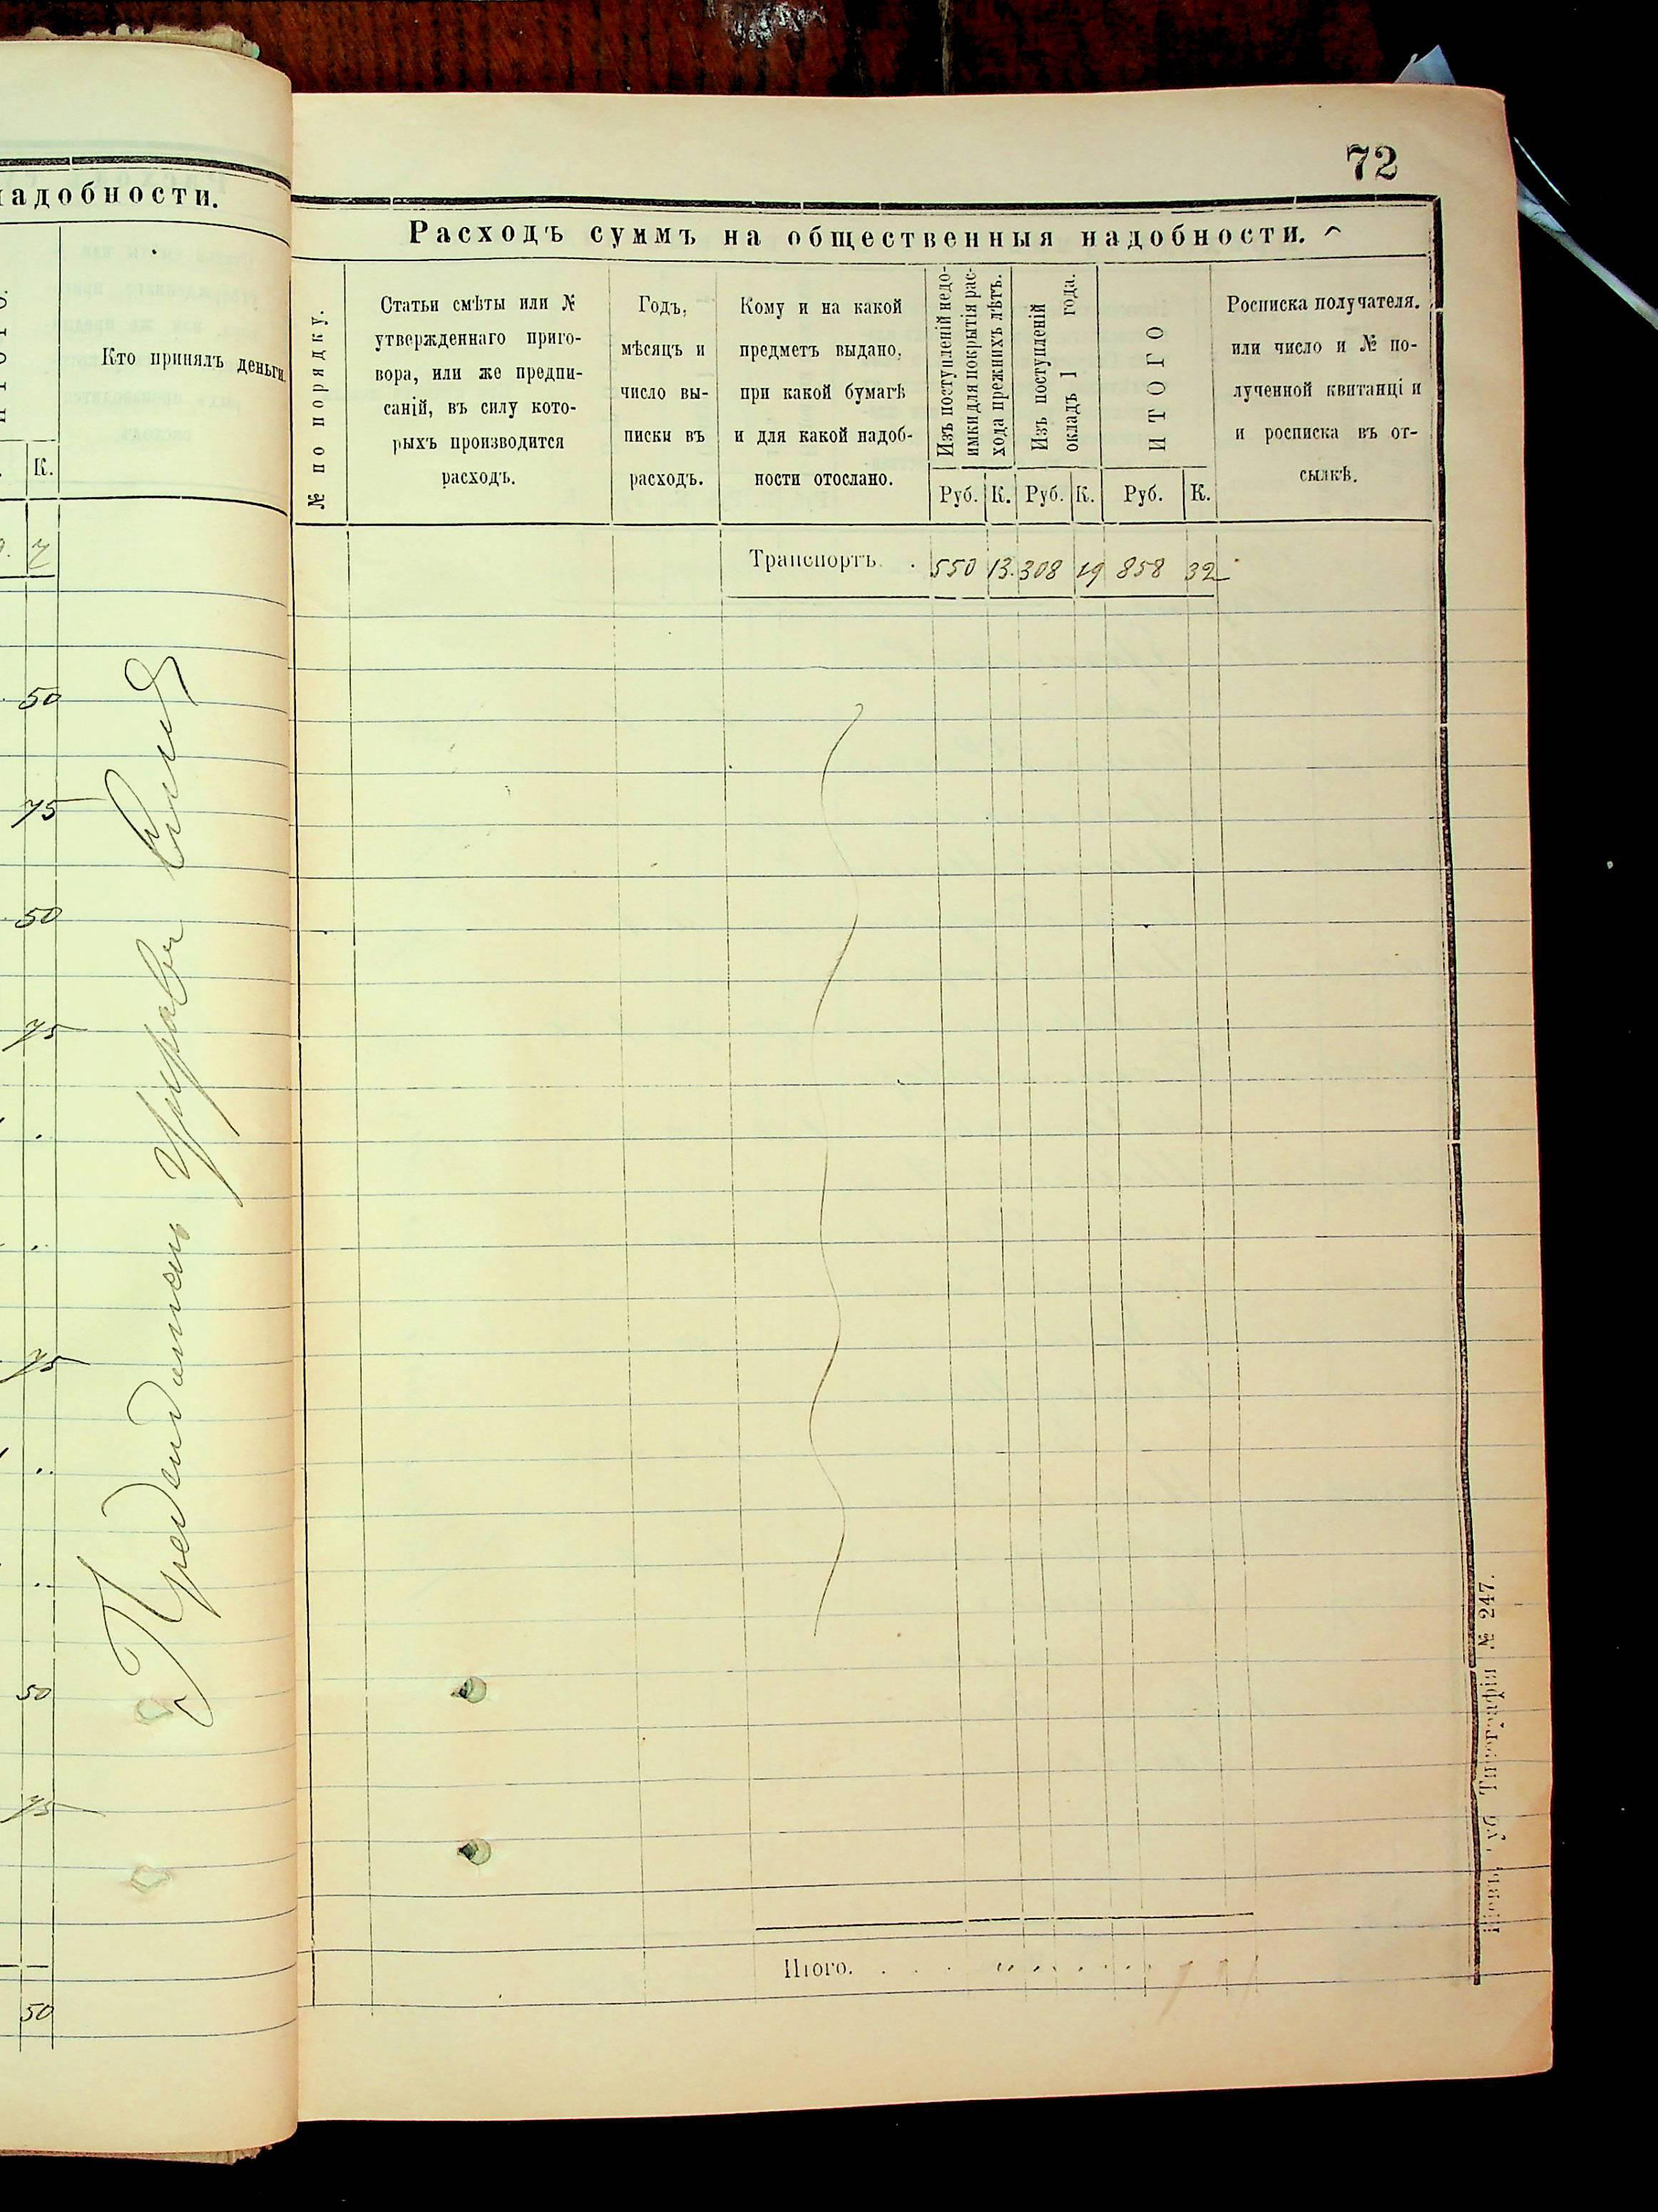 надобности.
Кто принялъ деньги.
К.
7
50
75
50
75
75
50
75
50
Предсѣдатель управы
72
Расходъ суммъ на общественныя надобности.
№ по порядку.
Статьи смѣты или №
утвержденнаго приго-
вора, или же предпи-
саній, въ силу кото-
рыхъ производится
расходъ.
Годъ,
мѣсяцъ и
число вы-
писки въ
расходъ.
Кому и на какой
предметъ выдано,
при какой бумагѣ
и для какой надоб-
ности отослано.
Изъ поступленій недо-
имки для покрытія рас-
хода прежнихъ лѣтъ.
Изъ поступленій
окладъ 1 года.
ИТОГО
Росписка получателя.
или число и № по-
лученной квитанці и
и росписка въ от-
сылкѣ.
Руб. К. Руб. К. Руб. К.
Транспортъ. . 550 13. 308 19 858 32
Итого. . . .
Типографія № 247.